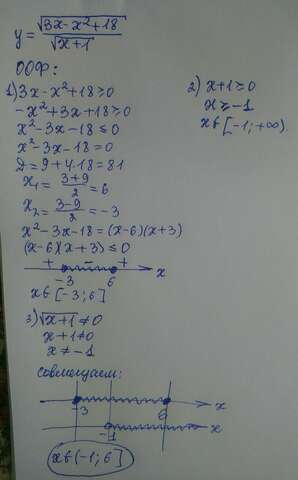 y = √(3x-x²+18) / √(x+1)
ООФ:
1) 3x-x²+18≥0
-x²+3x+18≥0
x²-3x-18≤0
x²-3x-18=0
D=9+4·18=81
x₁=(3+9)/2=6
x₂=(3-9)/2=-3
x²-3x-18=(x-6)(x+3)
(x-6)(x+3)≤0
+ - +
-3 6 x
x∈[-3;6]
2) x+1≥0
x≥-1
x∈[-1;+∞).
3) √(x+1)≠0
x+1≠0
x≠-1
совмещаем:
-3 6 x
-1 x
x∈(-1;6]